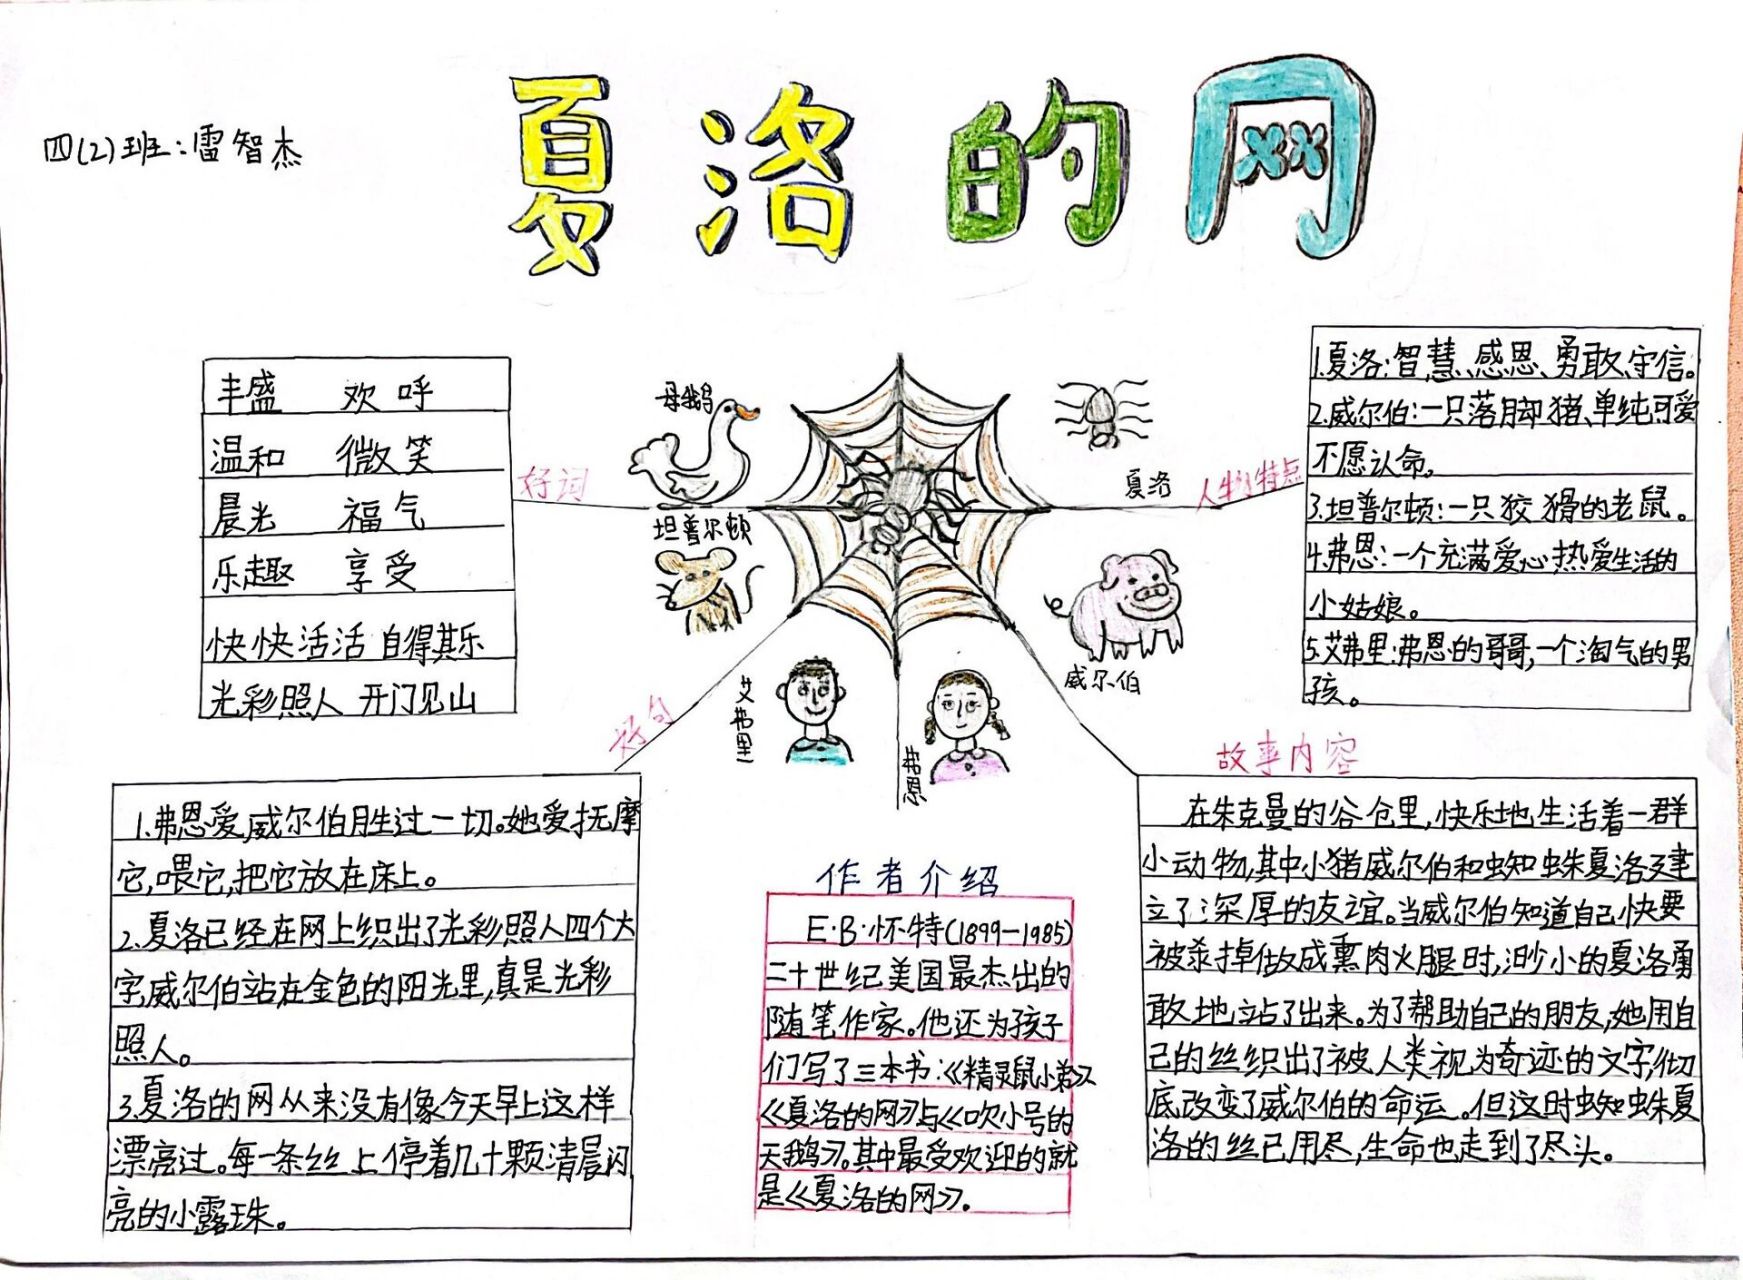 夏洛的网
四(2)班:雷智杰
丰盛 欢呼
温和 微笑
晨光 福气
乐趣 享受
快快活活 自得其乐
光彩照人 开门见山
好词
母鹅
坦普尔顿
夏洛
人物特点
1.夏洛:智慧、感恩、勇敢、守信。
2.威尔伯:一只落脚猪、单纯可爱
不愿认命。
3.坦普尔顿:一只狡猾的老鼠。
4.弗恩:一个充满爱心热爱生活的
小姑娘。
5.艾弗里:弗恩的哥哥,一个淘气的男
孩。
威尔伯
艾弗里
弗恩
好句
1.弗恩爱威尔伯胜过一切。她爱抚摩
它,喂它,把它放在床上。
2.夏洛已经在网上织出了光彩照人四个大
字,威尔伯站在金色的阳光里,真是光彩
照人。
3.夏洛的网从来没有像今天早上这样
漂亮过。每一条丝上停着几十颗清晨闪
亮的小露珠。
作者介绍
E·B·怀特(1899—1985)
二十世纪美国最杰出的
随笔作家。他还为孩子
们写了三本书:《精灵鼠小弟》
《夏洛的网》与《吹小号的
天鹅》。其中最受欢迎的就
是《夏洛的网》。
故事内容
在朱克曼的谷仓里,快乐地生活着一群
小动物,其中小猪威尔伯和蜘蛛夏洛建
立了深厚的友谊。当威尔伯知道自己快要
被杀掉做成熏肉火腿时,渺小的夏洛勇
敢地站了出来。为了帮助自己的朋友,她用自
己的丝织出了被人类视为奇迹的文字,彻
底改变了威尔伯的命运。但这时蜘蛛夏
洛的丝已用尽,生命也走到了尽头。